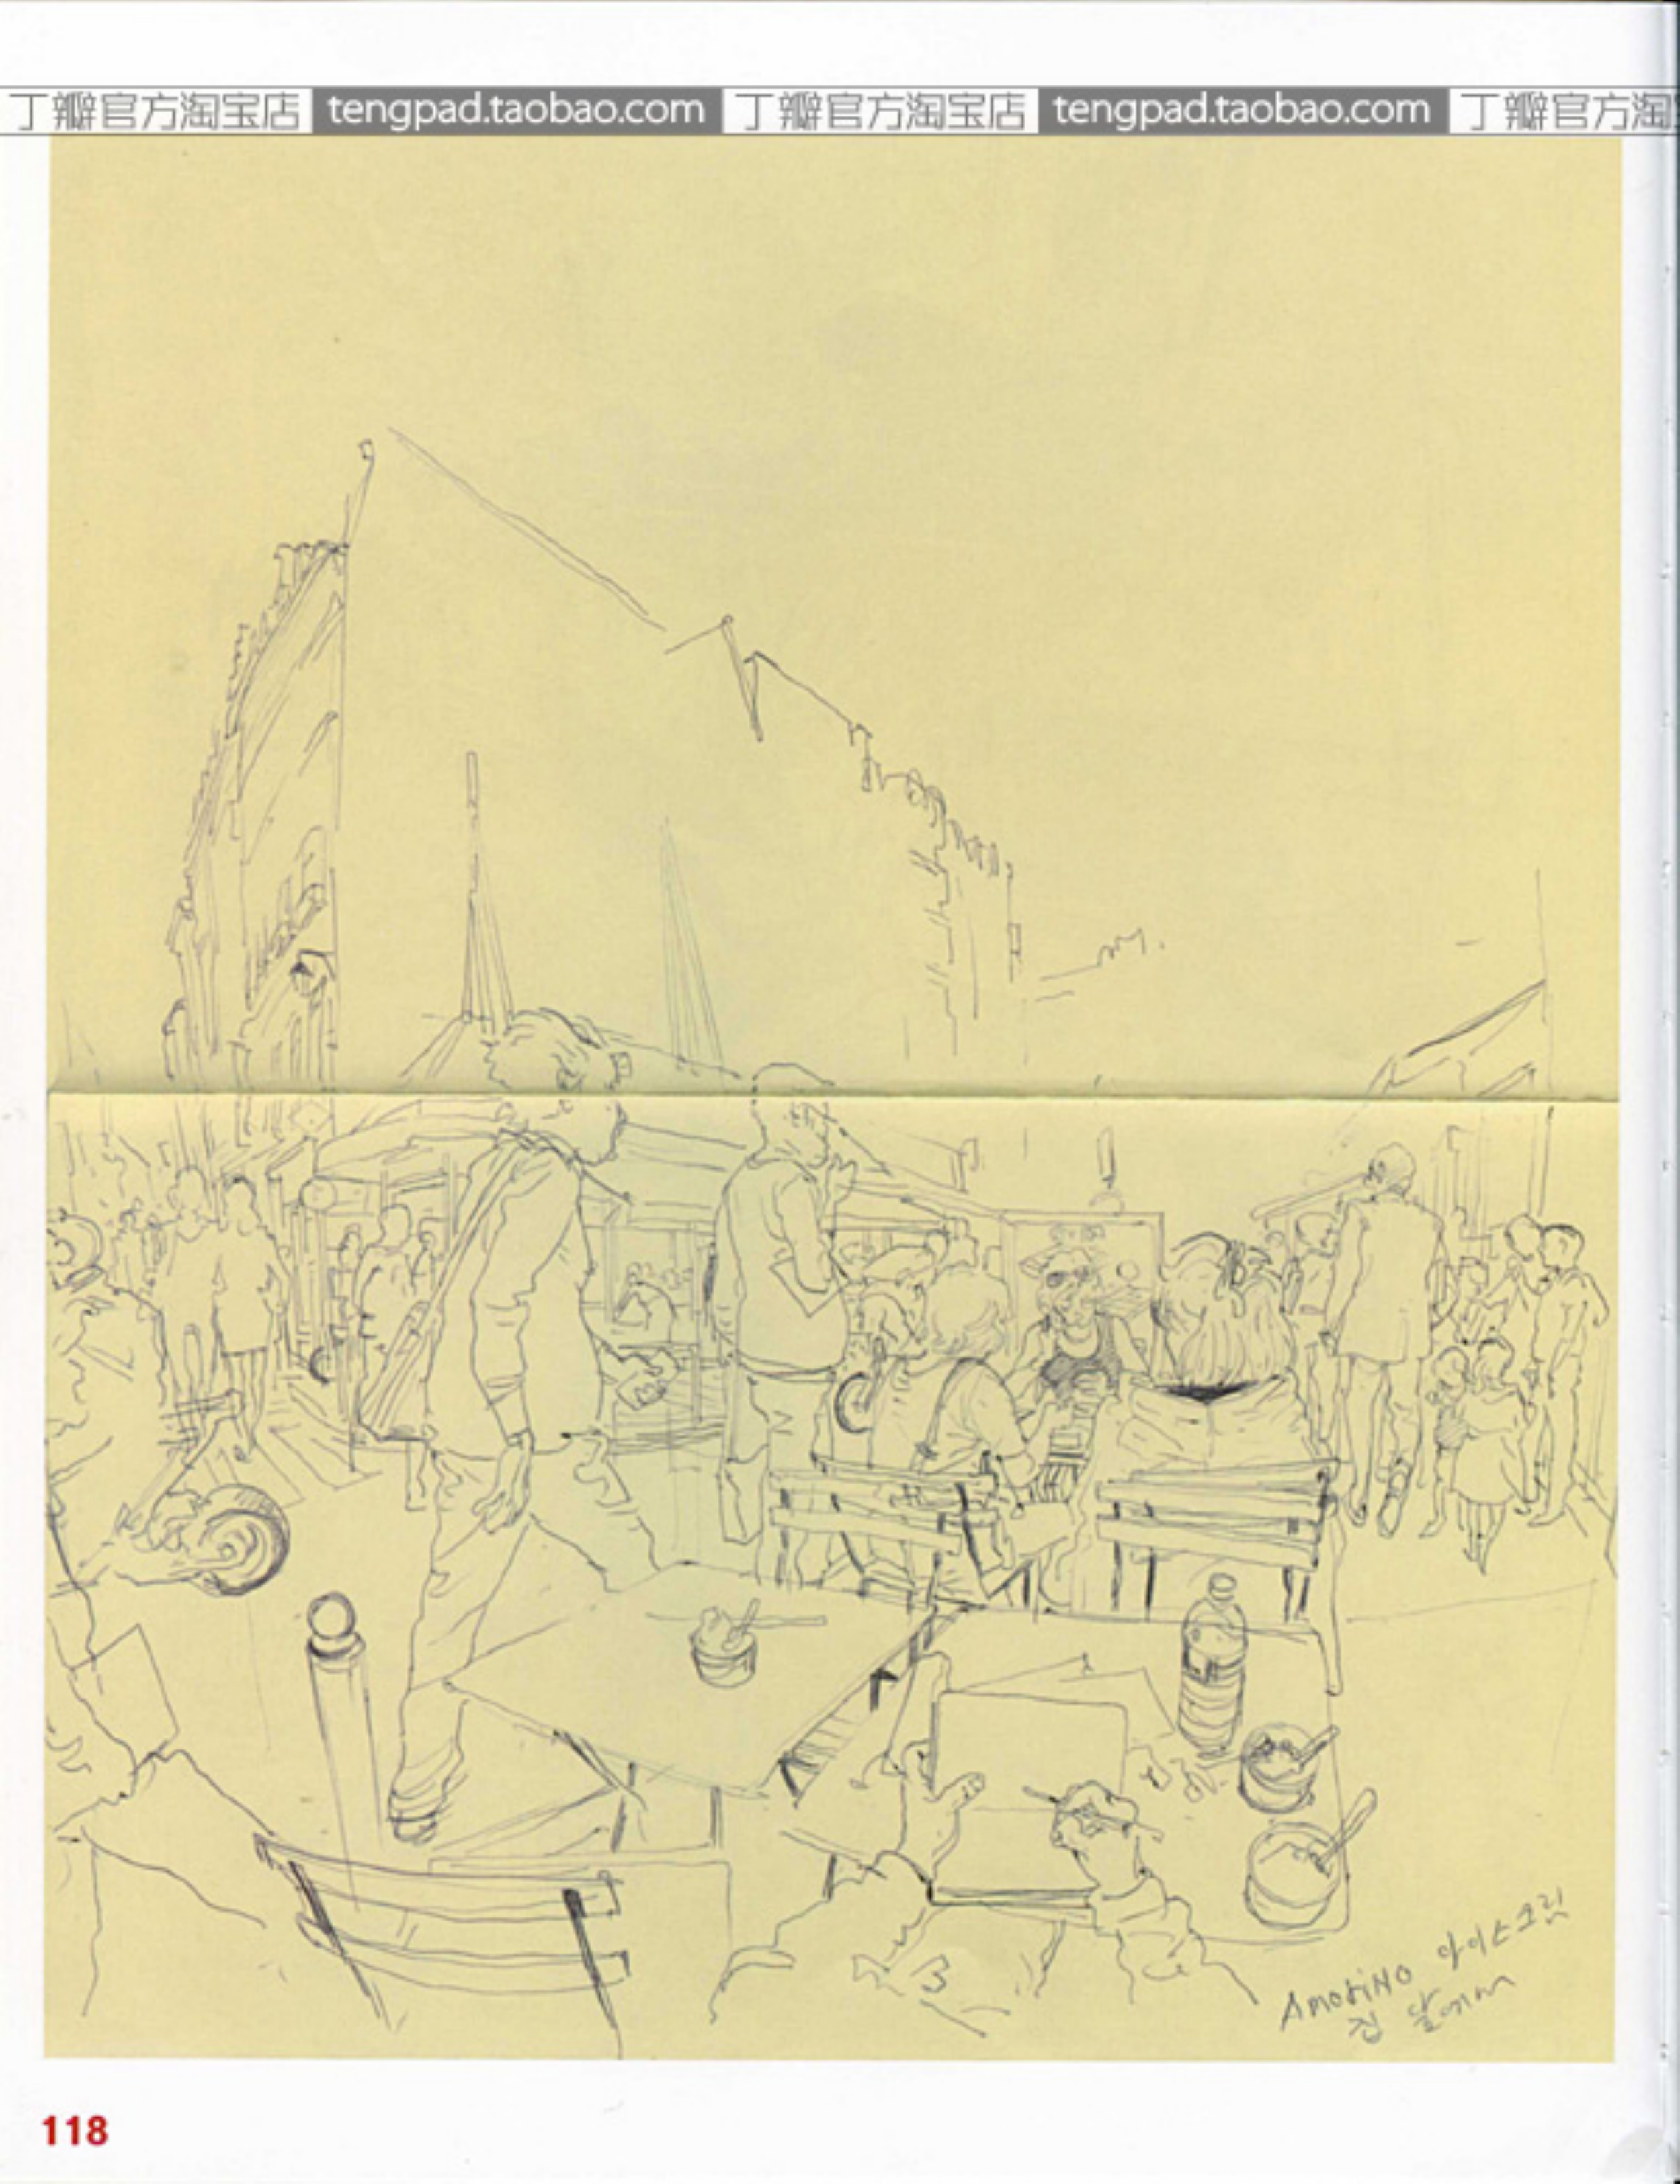 丁瓣官方淘宝店 tengpad.taobao.com 丁瓣官方淘宝店 tengpad.taobao.com 丁瓣官方淘
AMORiNO 아이스크림
집 앞에서
118